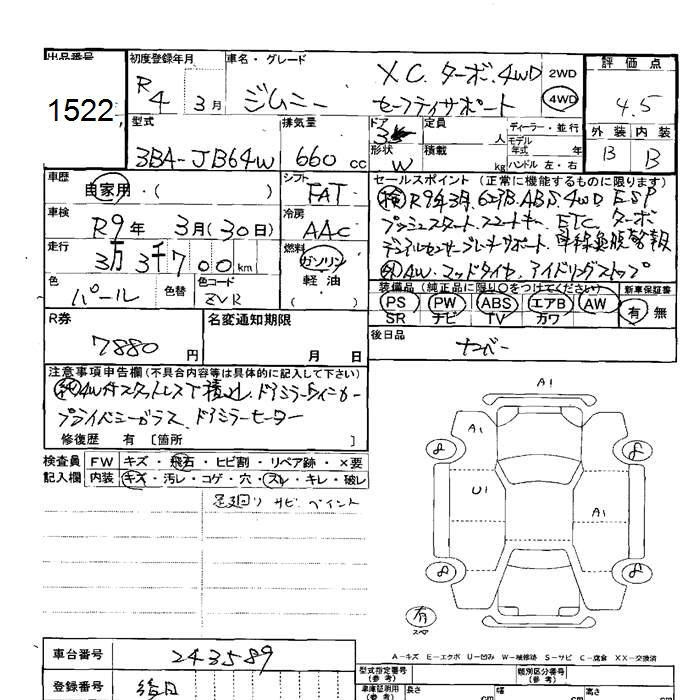 出品番号 初度登録年月 車名・グレード 評価点
1522 R4 3月 ジムニー XC ターボ 4WD 2WD 4WD 4.5
セーフティサポート
型式 排気量 ドア 定員 ディーラー・並行 外装 内装
3BA-JB64W 660cc 3 人 モデル年式 年 B B
形状 W 積載 kg ハンドル 左・右
車歴 自家用・( ) シフト FAT セールスポイント(正常に機能するものに限ります)
検R9年3月 6エアB.ABS.4WD ESP
車検 R9年 3月(30日) 冷房 AAC プッシュスタート スマートキー ETC ターボ
走行 3万3千700km 燃料 ガソリン 軽油 デュアルセンサーブレーキサポート 車線逸脱警報
社外AW マッドタイヤ アイドリングストップ
色 パール 色替 色コード ZVR 装備品(純正品に限り○をつけてください) 新車保証書
PS PW ABS エアB AW 有 無
SR ナビ TV カワ
R券 7880円 名変通知期限 月 日 後日品 ナンバー
注意事項申告欄(不具合内容等は具体的に記入して下さい)
純4AW付スタッドレスT積込 ドアミラーウィンカー
プライバシーガラス ドアミラーヒーター
修復歴 有 [箇所 ]
検査員 FW キズ・飛石・ヒビ割・リペア跡・×要
記入欄 内装 キズ・汚レ・コゲ・穴・スレ・キレ・破レ
足廻り サビ ペイント
A1
A1
8 8
U1 A1
8 8
有
スペア
A-キズ E-エクボ U-凹み W-補修跡 S-サビ C-腐食 XX-交換済
車台番号 243589 型式指定番号(参考) 類別区分番号(参考)
登録番号 後日 車庫証明用(参考) 長さ cm 幅 cm 高さ cm